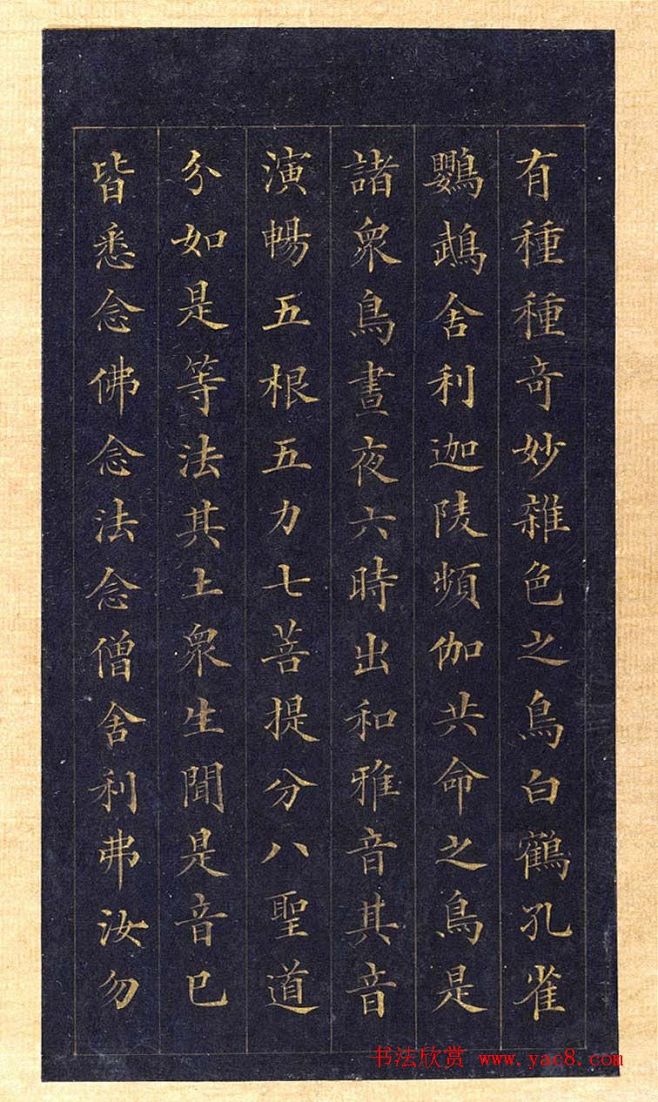 有種種奇妙雜色之鳥白鶴孔雀
鸚鵡舍利迦陵頻伽共命之鳥是
諸眾鳥晝夜六時出和雅音其音
演暢五根五力七菩提分八聖道
分如是等法其土眾生聞是音已
皆悉念佛念法念僧舍利弗汝勿
书法欣赏 www.yac8.com